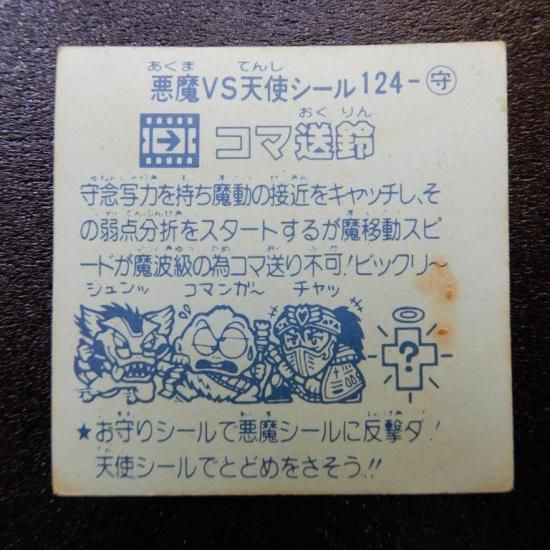 あくま てんし
悪魔VS天使シール 124-守
おく りん
コマ送鈴
守念写力を持ち魔動の接近をキャッチし、そ
の弱点分折をスタートするが魔移動スピ
ードが魔波級の為コマ送り不可!ビックリ〜
シュンッ コマンガ〜 チャッ
?
★お守りシールで悪魔シールに反撃ダ!
天使シールでとどめをさそう!!